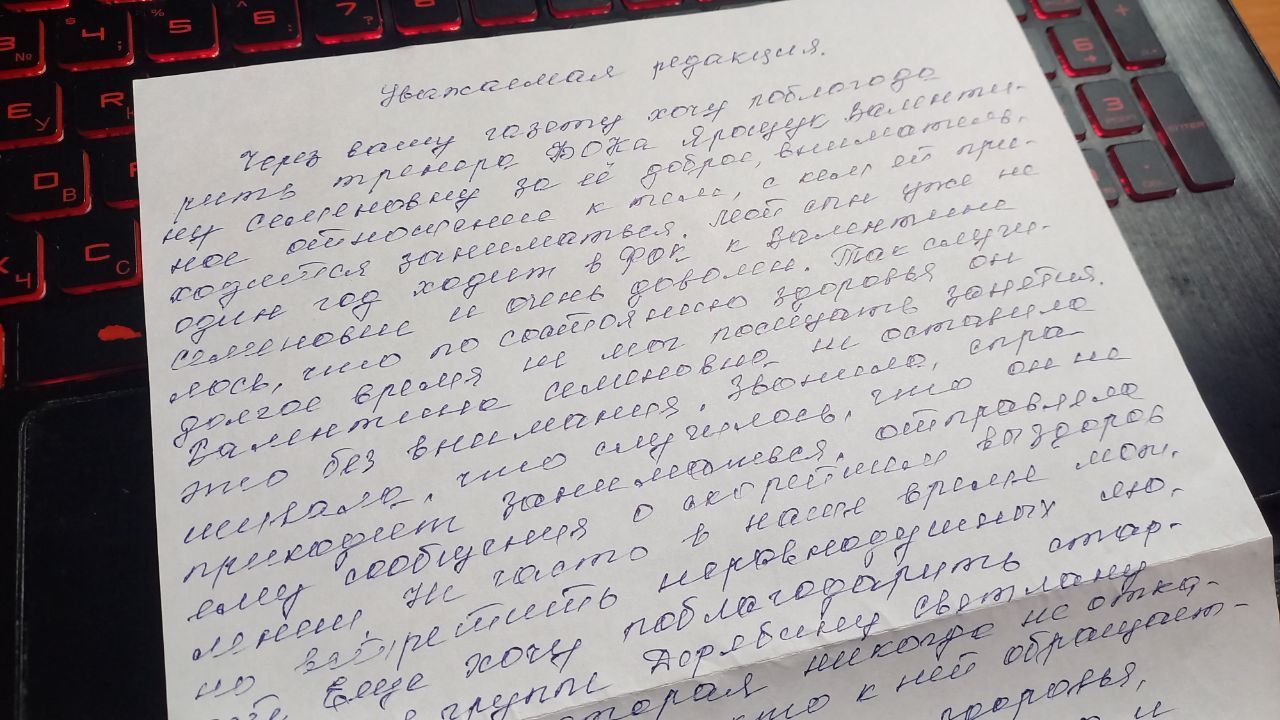 Уважаемая редакция.
Через вашу газету хочу поблагода
рить тренера ФОКа Ярощук Валенти-
ну Семеновну за её доброе, вниматель-
ное отношение к тем, с кем ей при-
ходится заниматься. Мой сын уже не
один год ходит в ФОК к Валентине
Семеновне и очень доволен. Так случи-
лось, что по состоянию здоровья он
долгое время не мог посещать занятия.
Валентина Семеновна не оставила
это без внимания. Звонила, спра-
шивала, что случилось, что он не
приходит заниматься, отправляла
ему сообщения о скорейшем выздоров
лении. Не часто в наше время мож-
но встретить неравнодушных лю-
дей. Еще хочу поблагодарить стар-
группы Дорябину Светлану
которая никогда не отка-
кто к ней обращает-
здоровья,
и
4
5
6
7
8
3
№
;
%
:
?
E
У
R
D
В
C
С
Ч
6
3
+
ENTER